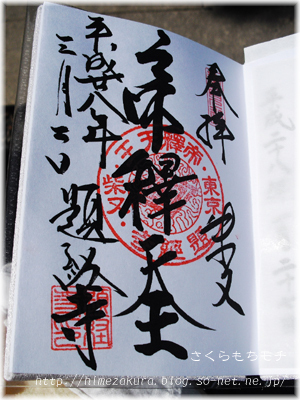 奉拝
柴又
帝釋天王
平成廿八年
三月二日 題経寺
帝釋天王
東京
柴又
題経寺
さくらもちモチ
http://himezakura.blog.so-net.ne.jp/